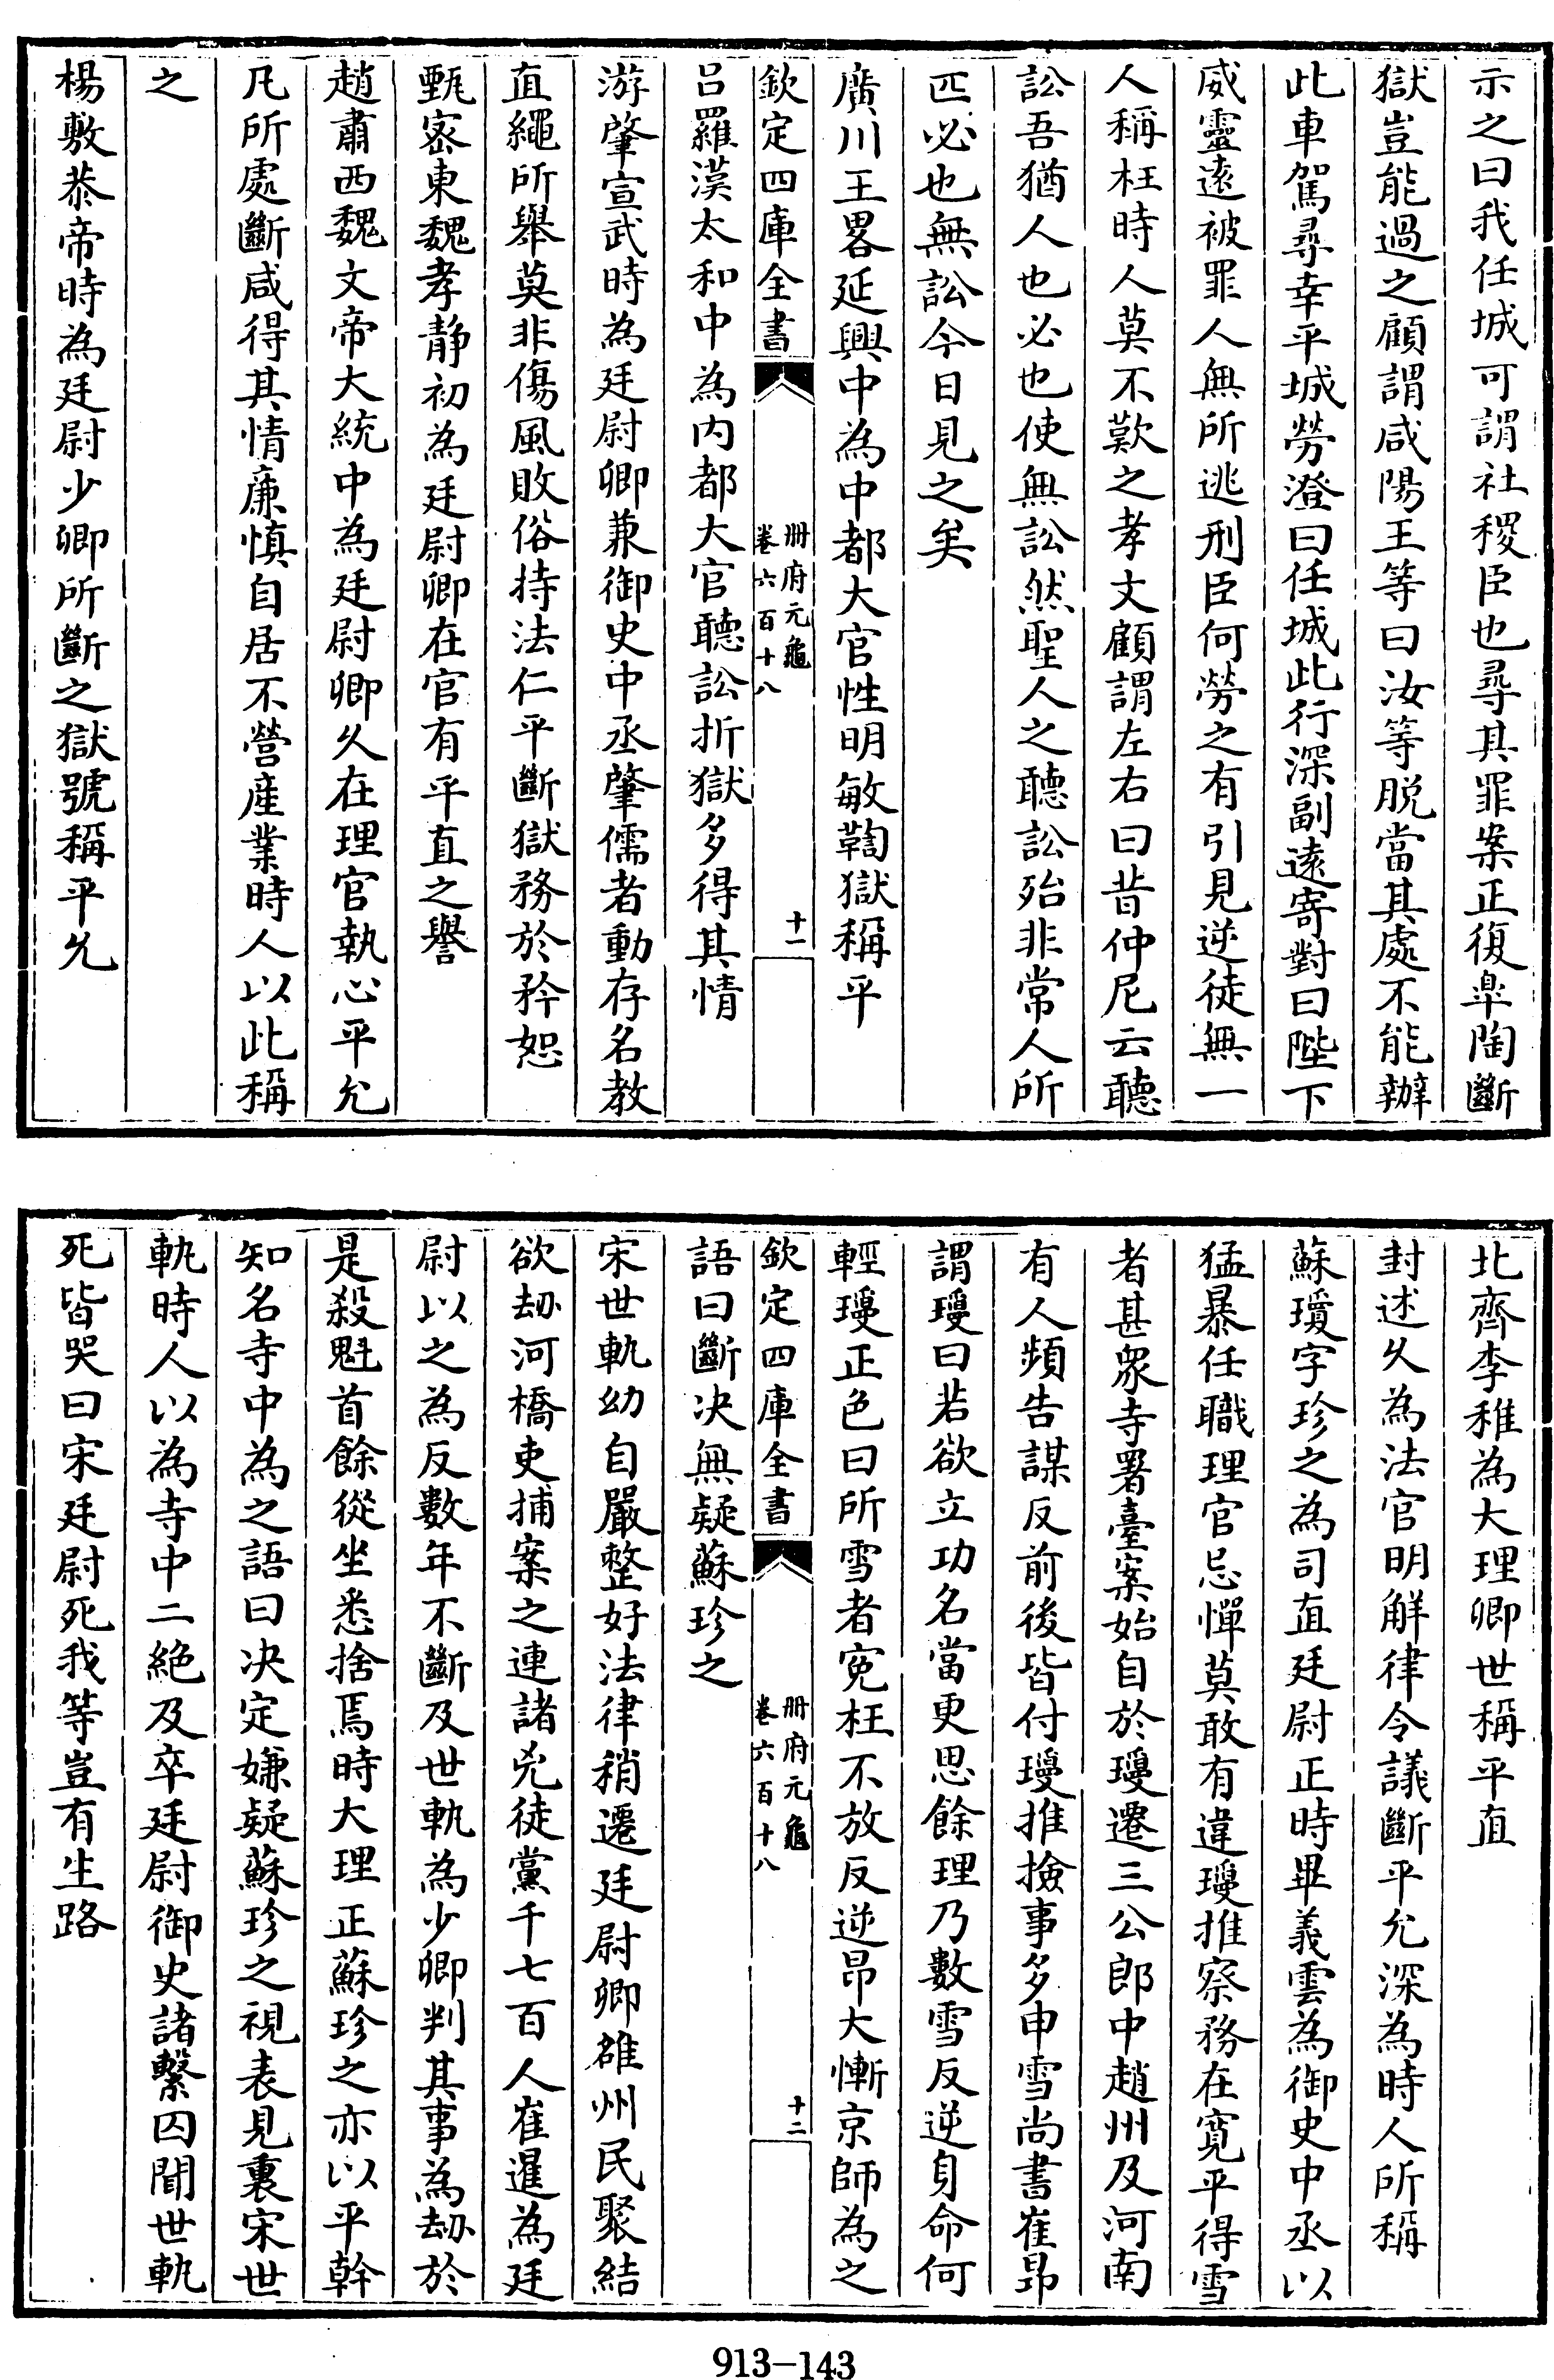 示之曰我任城可謂社稷臣也尋其罪案正復臯陶斷
獄豈能過之顧謂咸陽王等曰汝等脱當其處不能辦
此車駕尋幸平城勞澄曰任城此行深副遠寄對曰陛下
威靈遠被罪人無所逃刑臣何勞之有引見逆徒無一
人稱枉時人莫不歎之孝文顧謂左右曰昔仲尼云聽
訟吾猶人也必也使無訟然聖人之聽訟殆非常人所
匹必也無訟今日見之矣
廣川王畧延興中為中都大官性明敏鞫獄稱平
欽定四庫全書 冊府元龜 卷六百十八 十一
吕羅漢太和中為内都大官聽訟折獄多得其情
游肇宣武時為廷尉卿兼御史中丞肇儒者動存名教
直繩所舉莫非傷風敗俗持法仁平斷獄務於矜恕
甄宻東魏孝静初為廷尉卿在官有平直之譽
趙肅西魏文帝大統中為廷尉卿久在理官執心平允
凡所處斷咸得其情廉慎自居不營産業時人以此稱
之
楊敷恭帝時為廷尉少卿所斷之獄號稱平允
北齊李稚為大理卿世稱平直
封述久為法官明解律令議斷平允深為時人所稱
蘇瓊字珍之為司直廷尉正時畢義雲為御史中丞以
猛暴任職理官忌憚莫敢有違瓊推察務在寛平得雪
者甚衆寺署臺案始自於瓊遷三公郎中趙州及河南
有人頻告謀反前後皆付瓊推撿事多申雪尚書崔昂
謂瓊曰若欲立功名當更思餘理乃數雪反逆身命何
輕瓊正色曰所雪者寃枉不放反逆昂大慚京師為之
欽定四庫全書 冊府元龜 卷六百十八 十二
語曰斷决無疑蘇珍之
宋世軌幼自嚴整好法律稍遷廷尉卿雒州民聚結
欲刼河橋吏捕案之連諸兇徒黨千七百人崔暹為廷
尉以之為反數年不斷及世軌為少卿判其事為刼於
是殺魁首餘從坐悉捨焉時大理正蘇珍之亦以平幹
知名寺中為之語曰决定嫌疑蘇珍之視表見裏宋世
軌時人以為寺中二絶及卒廷尉御史諸繫囚聞世軌
死皆哭曰宋廷尉死我等豈有生路
913-143